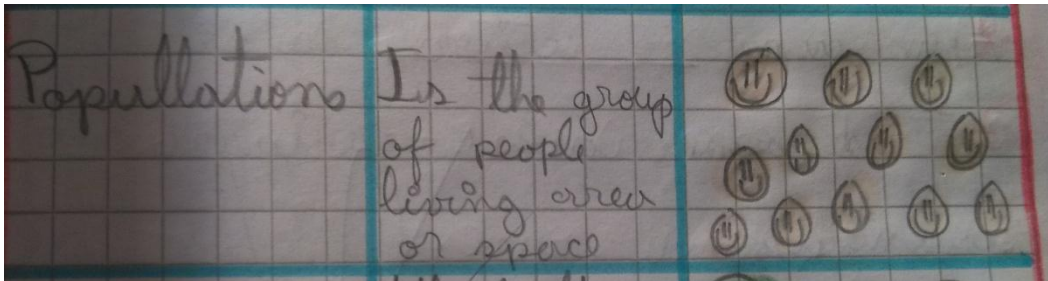 Popullation Is the group
of people
living area
or space